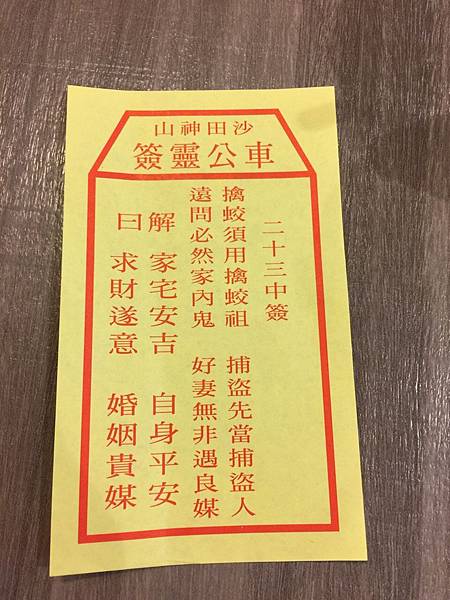 沙田神山
車公靈簽
二十三中簽
擒蛟須用擒蛟祖 捕盜先當捕盜人
遠問必然家內鬼 好妻無非遇良媒
解 家宅安吉 自身平安
曰 求財遂意 婚姻貴媒